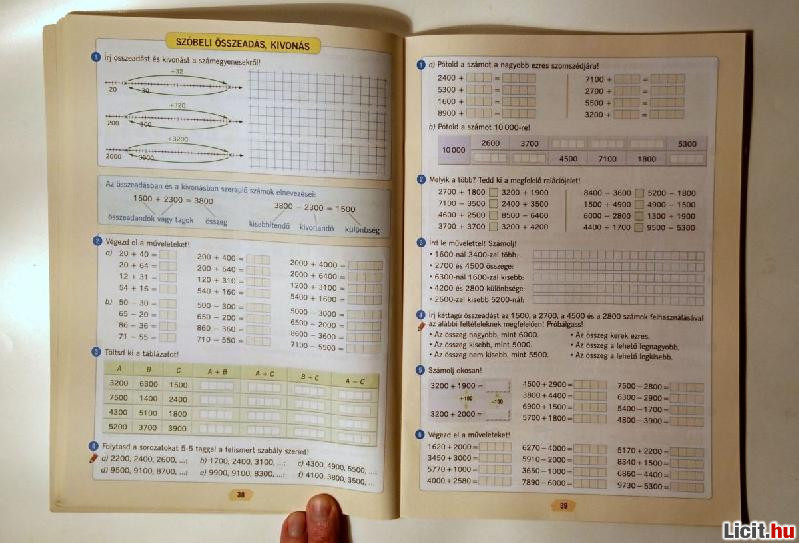 SZÓBELI ÖSSZEADÁS, KIVONÁS
1 Írj összeadást és kivonást a számegyenesekről!
+32
20 -30
+320
200 -300
+3200
2000 -3000
Az összeadásban és a kivonásban szereplő számok elnevezései:
1500 + 2300 = 3800
3800 - 2300 = 1500
összeadandók vagy tagok összeg kisebbítendő kivonandó különbség
2 Végezd el a műveleteket!
a) 20 + 40 = 200 + 400 = 2000 + 4000 =
20 + 64 = 200 + 640 = 2000 + 6400 =
12 + 31 = 120 + 310 = 1200 + 3100 =
54 + 16 = 540 + 160 = 5400 + 1600 =
b) 50 - 30 = 500 - 300 = 5000 - 3000 =
65 - 20 = 650 - 200 = 6500 - 2000 =
86 - 36 = 860 - 360 = 8600 - 3600 =
71 - 55 = 710 - 550 = 7100 - 5500 =
3 Töltsd ki a táblázatot!
A B C A + B A + C B + C A - C
3200 6300 1500
7500 1400 2400
4300 5100 1800
5200 3700 3900
4 Folytasd a sorozatokat 5-5 taggal a felismert szabály szerint!
a) 2200, 2400, 2600, ...; b) 1700, 2400, 3100, ...; c) 4300, 4900, 5500, ...;
d) 9500, 9100, 8700, ...; e) 9900, 9100, 8300, ...; f) 4100, 3800, 3500, ...
38
1 a) Pótold a számot a nagyobb ezres szomszédjára!
2400 + = 7100 + =
5300 + = 2700 + =
1600 + = 5500 + =
8900 + = 3200 + =
b) Pótold a számot 10 000-re!
10 000 2600 3700 5300
4500 7100 1800
2 Melyik a több? Tedd ki a megfelelő relációjelet!
2700 + 1800 3200 + 1900 8400 - 3600 5200 - 1800
7100 - 3500 2400 + 3500 1500 + 4900 4900 - 1500
4600 + 2500 8500 - 6400 6000 - 2800 1300 + 1900
3700 + 3700 3200 + 4200 4400 + 1700 9500 - 5300
3 Írd le művelettel! Számolj!
• 1600-nál 3400-zal több:
• 2700 és 4500 összege:
• 6300-nál 1600-zal kisebb:
• 4200 és 2800 különbsége:
• 2500-zal kisebb 5200-nál:
4 Írj kéttagú összeadást az 1500, a 2700, a 4500 és a 2800 számok felhasználásával
az alábbi feltételeknek megfelelően! Próbálgass!
• Az összeg nagyobb, mint 6000. • Az összeg kerek ezres.
• Az összeg kisebb, mint 5000. • Az összeg a lehető legnagyobb.
• Az összeg nem kisebb, mint 5500. • Az összeg a lehető legkisebb.
5 Számolj okosan!
3200 + 1900 = 4500 + 2900 = 7500 - 2800 =
+100 -100 3800 + 4400 = 6300 - 2900 =
6900 + 1500 = 5400 - 1700 =
3200 + 2000 = 5700 + 1800 = 4800 - 3900 =
6 Végezd el a műveleteket!
1620 + 2000 = 6270 - 4000 = 5170 + 2200 =
3450 + 3000 = 5910 - 2000 = 8340 + 1500 =
5770 + 1000 = 3650 - 1000 = 6860 - 4400 =
4000 + 2580 = 7890 - 6000 = 9730 - 5300 =
39
Licit.hu